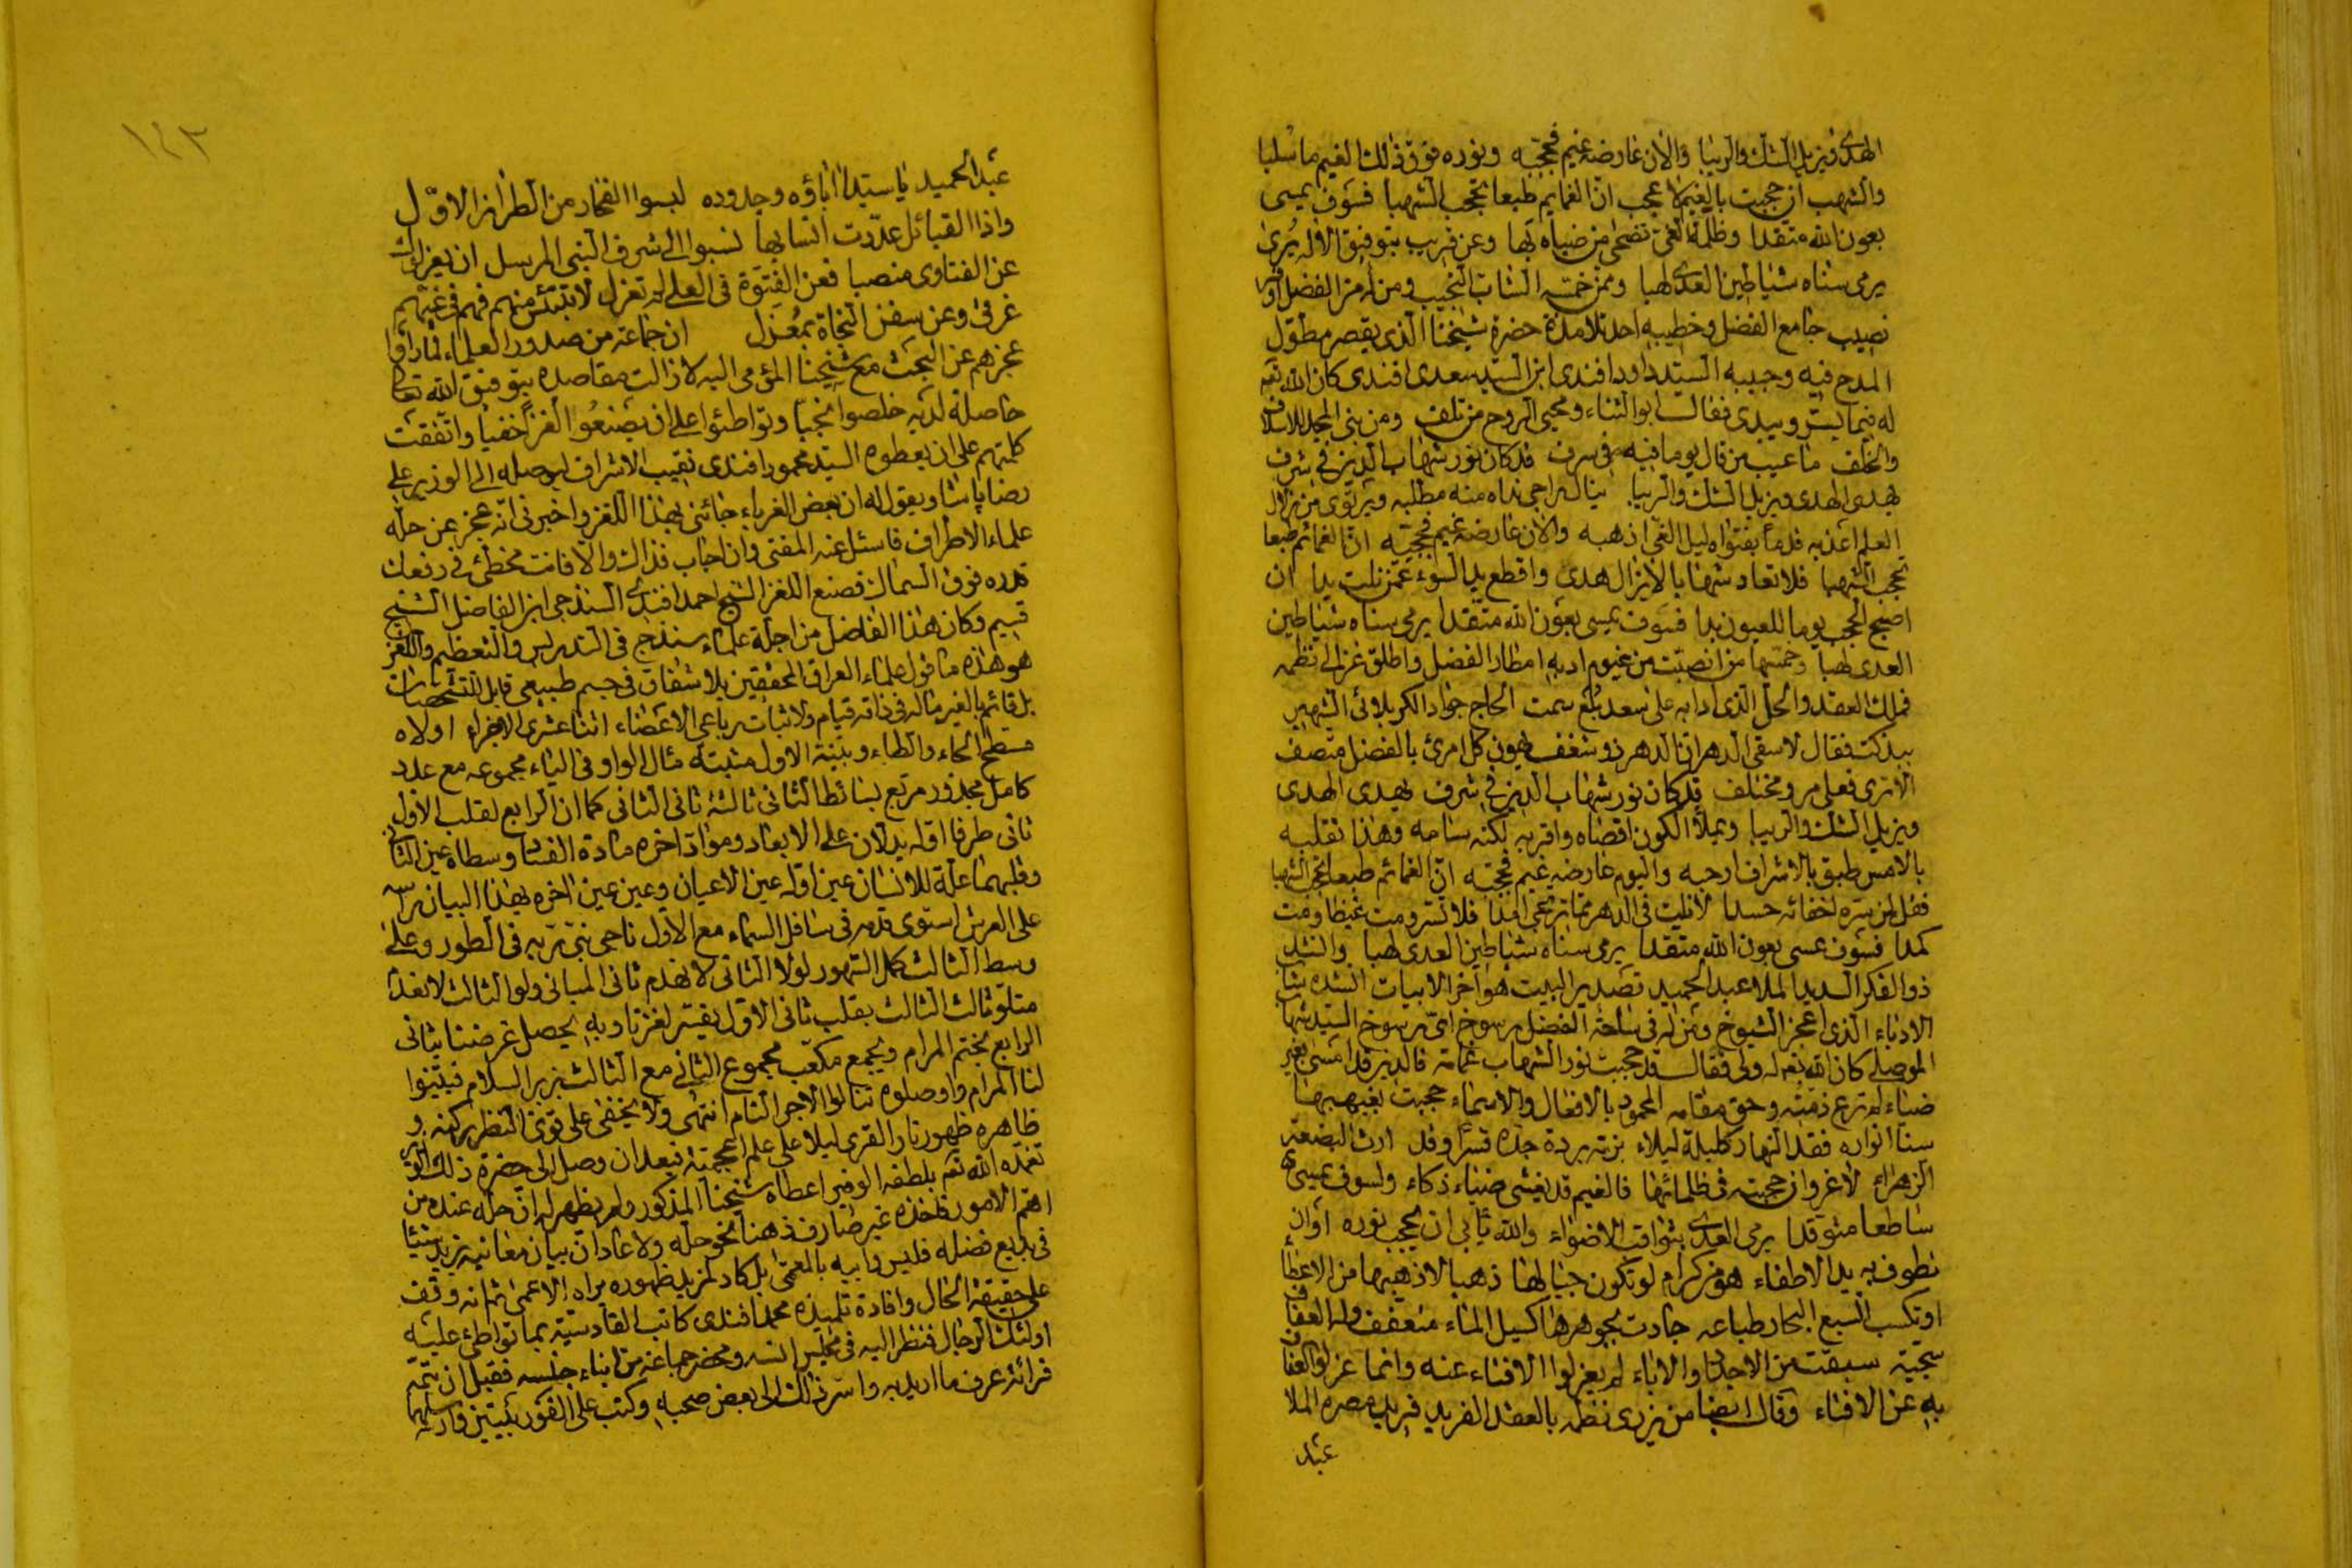 الهدى ويزيل الشك والريبا والآن عارضه غيم فحجبه ونوره فوق ذلك الغيم ما سُلبا
والشهب ان حجبت بالغيم لا عجب انّ الغمايم طبعا تحجب الشهبا فسوف يمسى
بعون الله متقدا وظلمة الغيّ تضحى من ضياه هبا وعن قريب بتوفيق الاله يُرى
يرمى سناه شياطين العدى لهبا وممن خمّسه الشاب النجيب ومن له من الفضل اوفر
نصيب جامع الفضل وخطيبه احد تلامذة حضرة شيخنا الذى يقصر مطوّل
المدح فيه وحبيبه السيد داود افندى ابن السيد سعدى افندى كان الله تعه
له فيما يسرّ ويبدى فقال ابو الثناء ومحيى الروح من تلف ومن بنى المجد للاسلاف
والخلف ما عيب من قال يوما فيه فى سرف قد كان نور شهاب الدين فى شرف
يهدى الهدى ويزيل الشك والريبا ينال راجى نداه منه مطلبه ويرتوى من زلال
العلم اعذبه قدماً بفتواه ليل الغىّ اذهبه والآن عارضه غيم فحجبه انّ الغمائم طبعا
تحجب الشهبا فلا تعاد شهابا لا يزال هدى واقطع يد السوء عمّن نلت يدا ان
اصبح الحجب يوما للعيون بدا فسوف يمسى بعون الله متقدا يرمى سناه شياطين
العدى لهبا وخمّسها من انصبّت من غيوم ادبه امطار الفضل واطلق غزالى نظمه
فملك العقد والحل الذى ادابه على سعد بُلَع سمت الحاج جواد الكربلائى الشهير
ببذكت فقال لا سقى الدهر انّ الدهر ذو شغف بهون كل امرئ بالفضل متصف
الا ترى فعلى مر ومختلف قد كان نور شهاب الدين فى شرف يهدى الهدى
ويزيل الشك والريبا ويملأ الكون اقصاه واقربه لكنه سامه وهذا تقلبه
بالامس طبق بالاشراف ارحبه واليوم عارضه غيم فحجبه انّ الغمائم طبعا تحجب الشهبا
فقل لمن سره اخفائه حسدا لا نلت فى الدهر ممّا ترتجى امدا فلا تسر ومت غيظا ومت
كمدا فسوف يمسى بعون الله متقدا يرمى سناه شياطين العدى لهبا وانشد
ذو الفكر السديد الملا عبد الحميد تصدير البيت هو آخر الابيات انشده شاب
الادباء الذى اعجز الشيوخ ومن له فى ساحة الفضل رسوخ اىّ رسوخ السيد شهاب
الموصلى كان الله تعه له ولى فقال قد حجبت نور الشهاب غمامة فالدين قد امسى بغير
ضياء لم ترع ذمته وحق مقامه المحمود بالافعال والاسماء حجبت بغيهبها
سنا انواره فقد النهار كليلة ليلاء بزته بردة جده قسرًا وقد ارث البضعة
الزهراء لا غرو ان حجبته فى ظلمائها فالغيم قد يغشى ضياء ذكاء ولسوف يمسى
ساطعا متوقدا يرمى العدى بثواقب الاضواء والله يأبى ان يحجب نوره او ان
تطوف به يد الاطفاء هو من كرام لو تكون جبالها ذهبا لاذهبها من الاعطا
او تكسب السبع البحار طباعه جادت بجوهرها كسيل الماء متعفف وله العفاف
سجية سبقت من الاجداد والاباء لم يعزلوا الافتاء عنه وانما عزلوا العفاف
به عن الافتاء وقال ايضا من يزرى نظمه بالعقد الفريد فريد عصره الملا
عبد
١٤٣
عبد الحميد يا سيدا اباؤه وجدوده لبسوا الفخار من الطراز الاوّل
واذا القبائل عدّدت انسابها نسبوا الى شرف النبى المرسل ان يعزلوك
عن الفتاوى منصبا فعن الفتوة فى العلى لم تعزل لا تبتئس منهم فهم فى غيّهم
غرقى وعن سفن النجاة بمعزل ان جماعة من صدور العلماء لما رأوا
عجزهم عن البحث مع شيخنا المؤمى اليه لا زالت مقاصده بتوفيق الله تعالى
حاصلة لديه خلصوا نجيّا وتواطئوا على ان يصنعوا لغزاً خفيا واتفقت
كلمتهم على ان يعطوه السيد محمود افندى نقيب الاشراف ليوصله الى الوزير على
رضا پاشا ويقول له ان بعض الغرباء جائنى بهذا اللغز واخبرنى انّه عجز عن حلّه
علماء الاطراف فاسئل عنه المفتى وان اجاب فذاك والا فانت مخطئ فى رفعك
قدره فوق السماك فصنع اللغز الشيخ احمد افندى السنندجى ابن الفاضل الشيخ
قسيم وكان هذا الفاضل من اجلة علماء سنندج فى التدريس والتعظيم واللغز
هو هذه ما قول علماء العراق المحققين بلا شقاق فى جسم طبيعى قابل للتشخصات
بل قائم بالغير ماله فى ذاته قيام ولا ثبات رباعى الاعضاء اثنا عشرى الاجزاء اولاه
مسطح الحاء والطاء وبينة الاول مثبتة مثال الواو فى الياء مجموعه مع عدد
كامل مجذور مربع بسائطا لثانى ثالثه ثانى الثانى كما ان الرابع لقلب الاول
ثانى طرفا اوله يدلان على الابعاد ومواد اخره مادة الفساد وسطاه عين الثانى
وقلبهما علة للانسان عين اوله عين الاعيان وعين عين اخره بهذا البيان راسه
على العرش استوى قدمه فى سافل السماء مع الاول ناجى نبى ربه فى الطور وعلى
وسط الثالث كل الشهور لولا الثانى لانهدم ثانى المبانى ولو الثالث لانعدم
متلو ثالث الثالث بقلب ثانى الاول يفسر لغزنا وبه يحصل غرضنا بثانى
الرابع نختم المرام ونجمع مكعّب مجموع الثانى مع الثالث بزبر السلام فبينوا
لنا المرام واوصلوه تنالوا الاجر التام انتهى ولا يخفى على قوى النظر ركنه و
ظاهره ظهور نار القرى ليلا على علم اعجميته فبعد ان وصل الى حضرة ذلك الوزير
تغمده الله تعه بلطفه الوفير اعطاه شيخنا المذكور ولم يظهر له ان حله عنده من
اهمّ الامور فاخذه غير صارف ذهنا نحو حله ولا عادا ان بيان معانيه يزيد شيئا
فى بديع فضله فليس وابيه بالمعمى بل كاد لمزيد ظهوره يراه الاعمى ثم انه وقف
على حقيقة الحال وافادة تلميذه محمد افندى كاتب القادسية بما تواطئ عليه
اولئك الرجال فنظر اليه فى مجلس انسه ومحضر جماعة من ابناء جنسه فقبل ان تتمّه
قرائة عرف ما اريد به واسرّ ذلك الى بعض صحبه وكتب على الفور بيتين وارسلهما